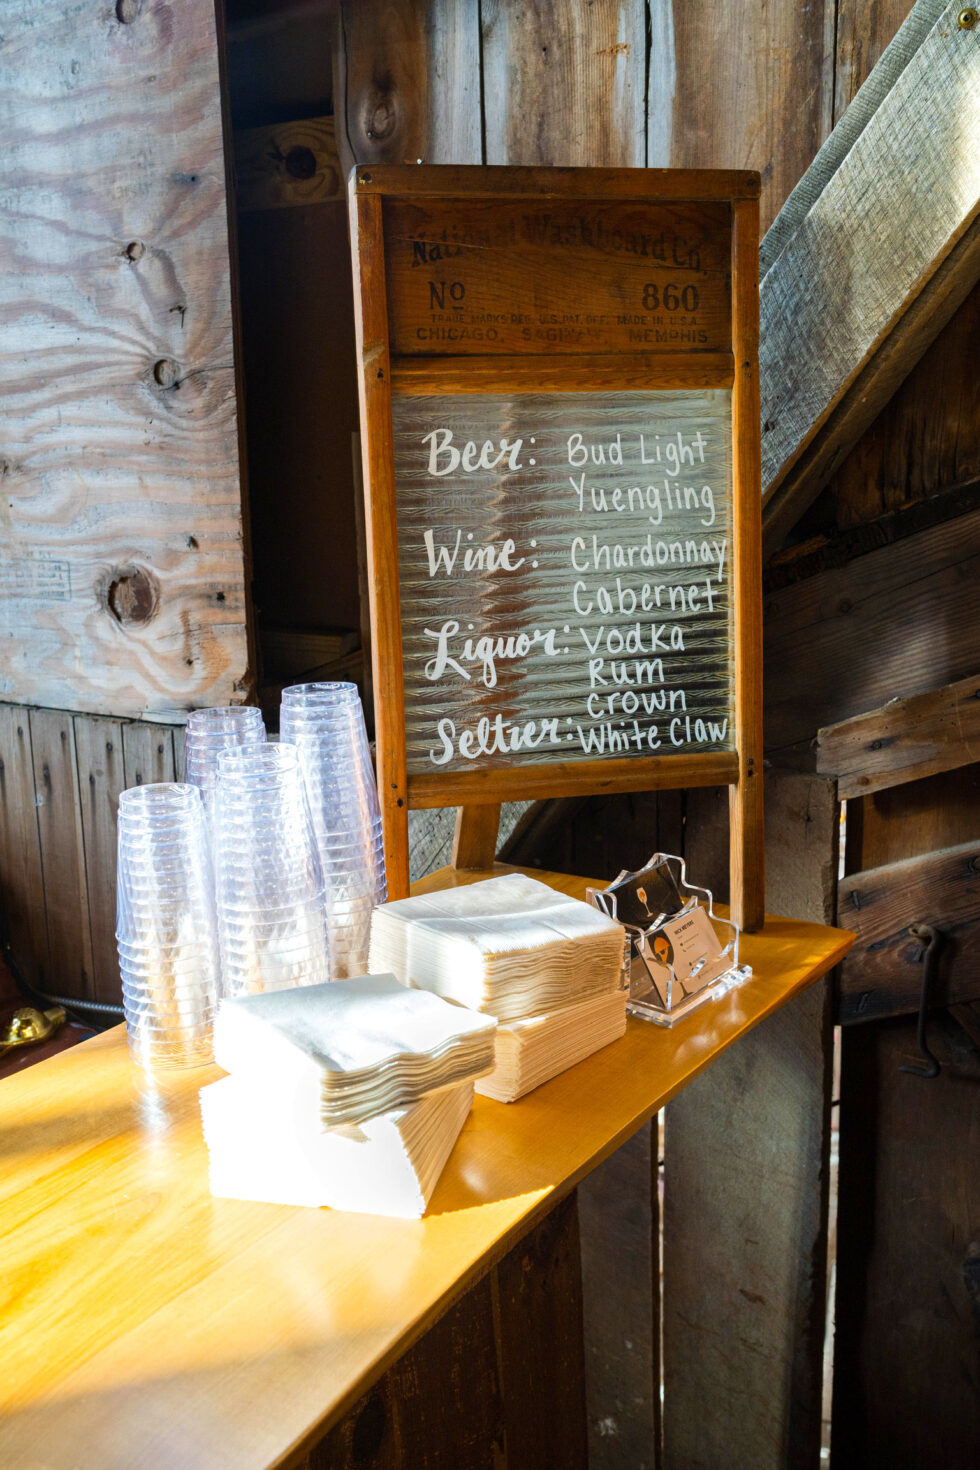 National Washboard Co.
No 860
TRADE MARKS REG. U.S. PAT. OFF. MADE IN U.S.A.
CHICAGO, SAGINAW, MEMPHIS
Beer: Bud Light
Yuengling
Wine: Chardonnay
Cabernet
Liquor: Vodka
Rum
Crown
Seltzer: White Claw